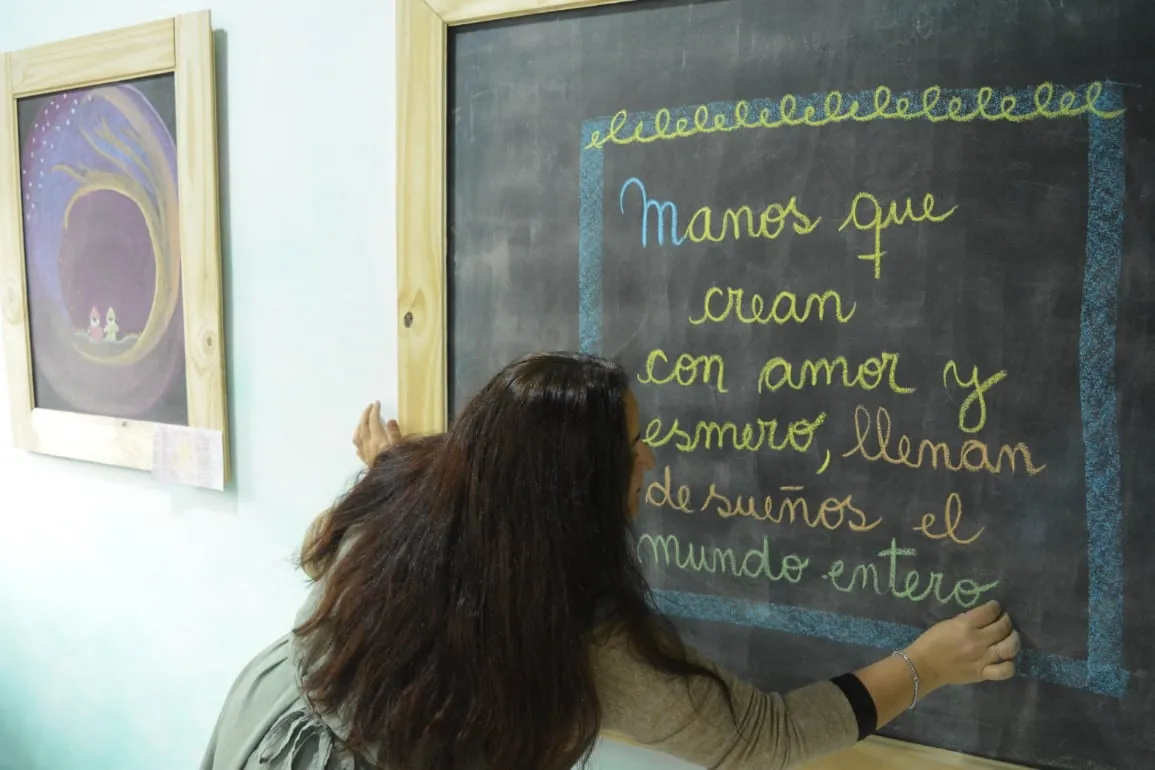 Manos que
crean
con amor y
esmero, llenan
de sueños el
mundo entero